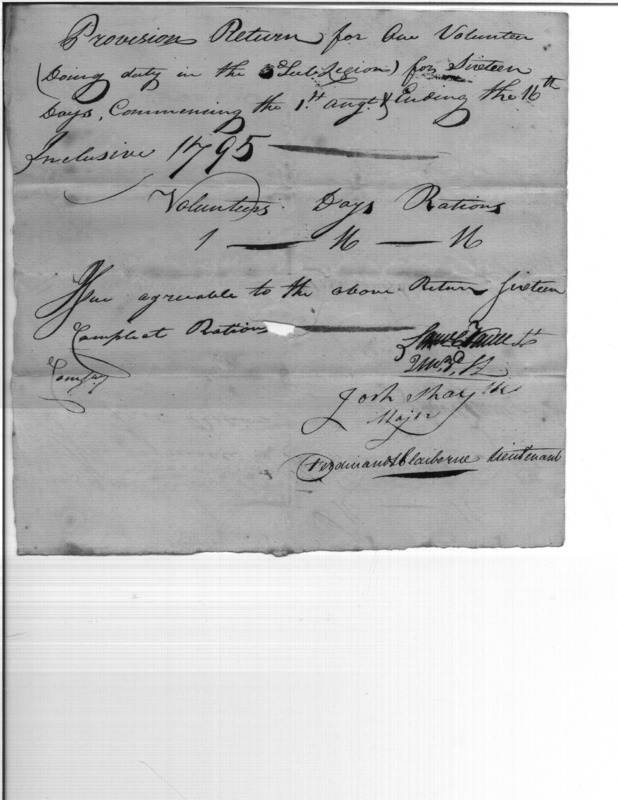 Provision Return for One Volunteer
(Doing duty in the 3d Sub Legion) for Sixteen
Days, Commencing the 1st augt. & Ending the 16th
Inclusive 1795
Volunteers Days Rations
1 — 16 — 16
agreeable to the above Return Sixteen
Compleat Rations
Lt
Qm. 3d. S L
Josh Shaylor
Major
Ferdinand L Claiborne Lieutenant